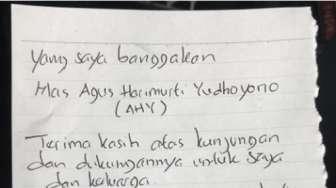 Yang saya banggakan
Mas Agus Harimurti Yudhoyono
(AHY)
Terima kasih atas kunjungan
dan dukungannya untuk saya
dan keluarga.